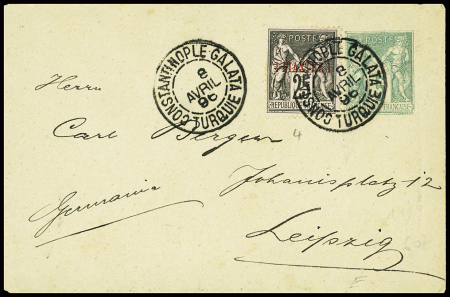 CONSTANTINOPLE GALATA
8
AVRIL
96
TURQUIE
POSTES
25
REPUBLIQUE
CONSTANTINOPLE GALATA
8
AVRIL
96
TURQUIE
POSTE
FRANÇAISE
Herrn
Carl Bergen
4
Johannisplatz 12
Germania
Leipzig